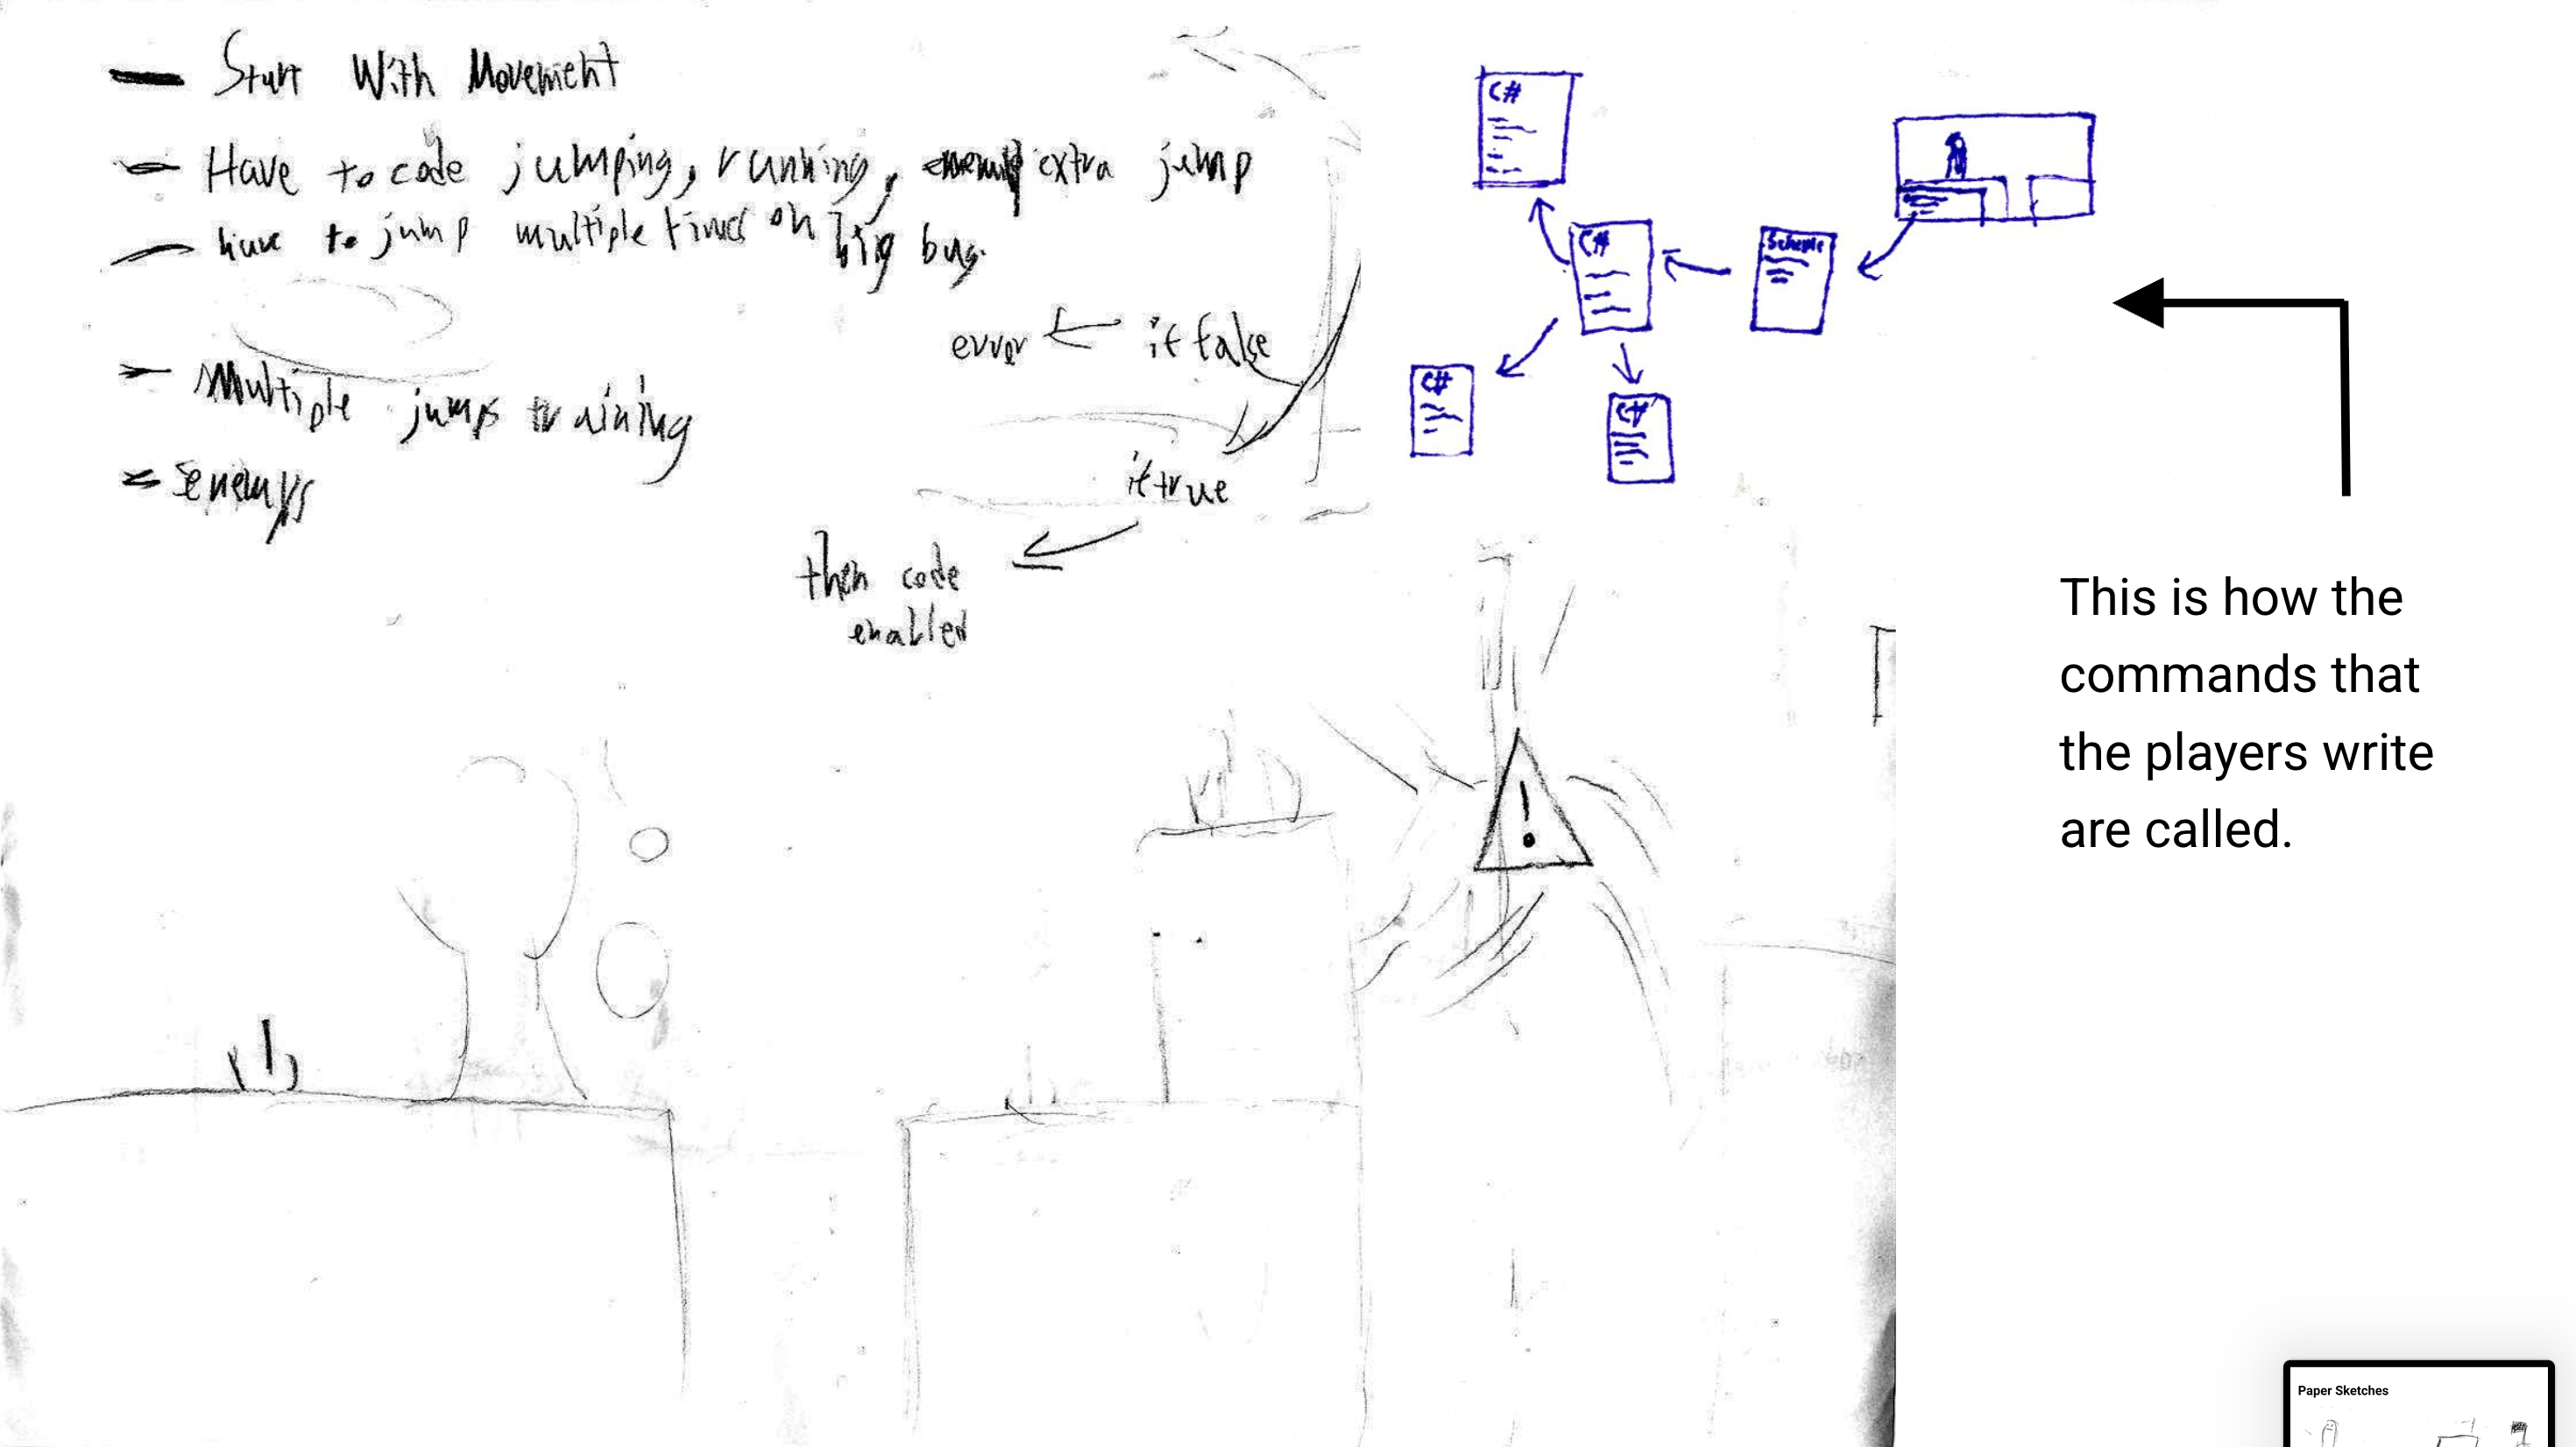 Start With Movement
Have to code jumping, running, extra jump
have to jump multiple times on big bug.
error
if false
Multiple jumps training
enemys
if true
then code
enabled
C#
C#
Scheme
C#
C#
!
This is how the
commands that
the players write
are called.
Paper Sketches